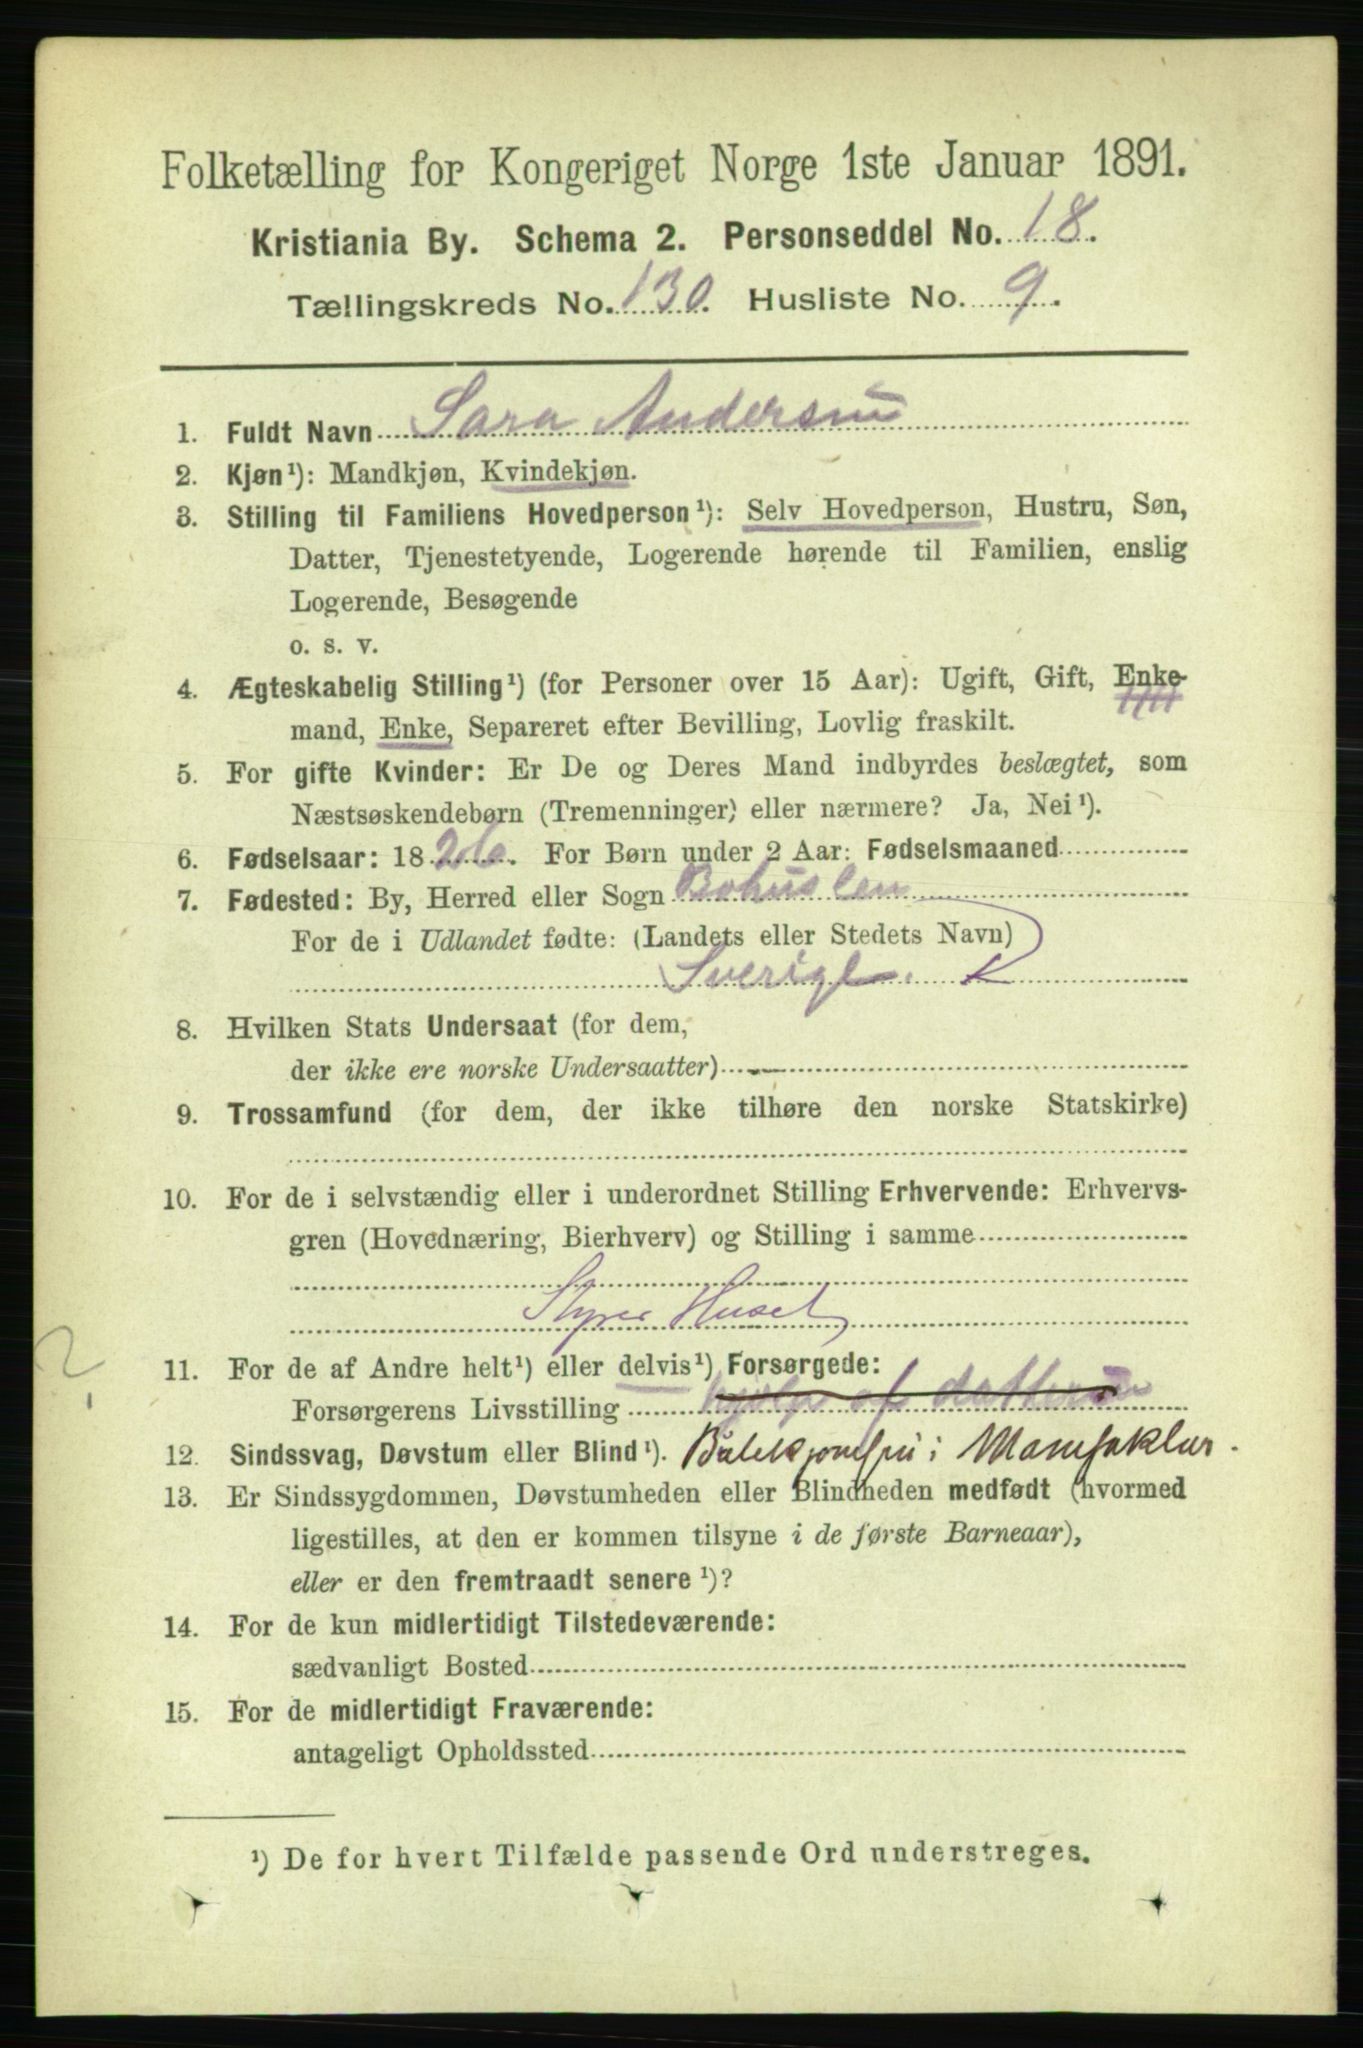 Folketælling for Kongeriget Norge 1ste Januar 1891.
Kristiania By. Schema 2. Personseddel No. 18.
Tællingskreds No. 130. Husliste No. 9.
1. Fuldt Navn Sara Andersen
2. Kjøn¹): Mandkjøn, Kvindekjøn.
3. Stilling til Familiens Hovedperson¹): Selv Hovedperson, Hustru, Søn,
Datter, Tjenestetyende, Logerende hørende til Familien, enslig
Logerende, Besøgende
o. s. v.
4. Ægteskabelig Stilling¹) (for Personer over 15 Aar): Ugift, Gift, Enke-
mand, Enke, Separeret efter Bevilling, Lovlig fraskilt.
5. For gifte Kvinder: Er De og Deres Mand indbyrdes beslægtet, som
Næstsøskendebørn (Tremenninger) eller nærmere? Ja, Nei¹).
6. Fødselsaar: 1826. For Børn under 2 Aar: Fødselsmaaned
7. Fødested: By, Herred eller Sogn Bohuslen
For de i Udlandet fødte: (Landets eller Stedets Navn)
Sverige.
8. Hvilken Stats Undersaat (for dem,
der ikke ere norske Undersaatter)
9. Trossamfund (for dem, der ikke tilhøre den norske Statskirke)
10. For de i selvstændig eller i underordnet Stilling Erhvervende: Erhvervs-
gren (Hovednæring, Bierhverv) og Stilling i samme
Styrer Huset
?
11. For de af Andre helt¹) eller delvis¹) Forsørgede:
Forsørgerens Livsstilling hjelp af datteren
12. Sindssvag, Døvstum eller Blind¹). i Manufaktur.
13. Er Sindssygdommen, Døvstumheden eller Blindheden medfødt (hvormed
ligestilles, at den er kommen tilsyne i de første Barneaar),
eller er den fremtraadt senere¹)?
14. For de kun midlertidigt Tilstedeværende:
sædvanligt Bosted
15. For de midlertidigt Fraværende:
antageligt Opholdssted
¹) De for hvert Tilfælde passende Ord understreges.